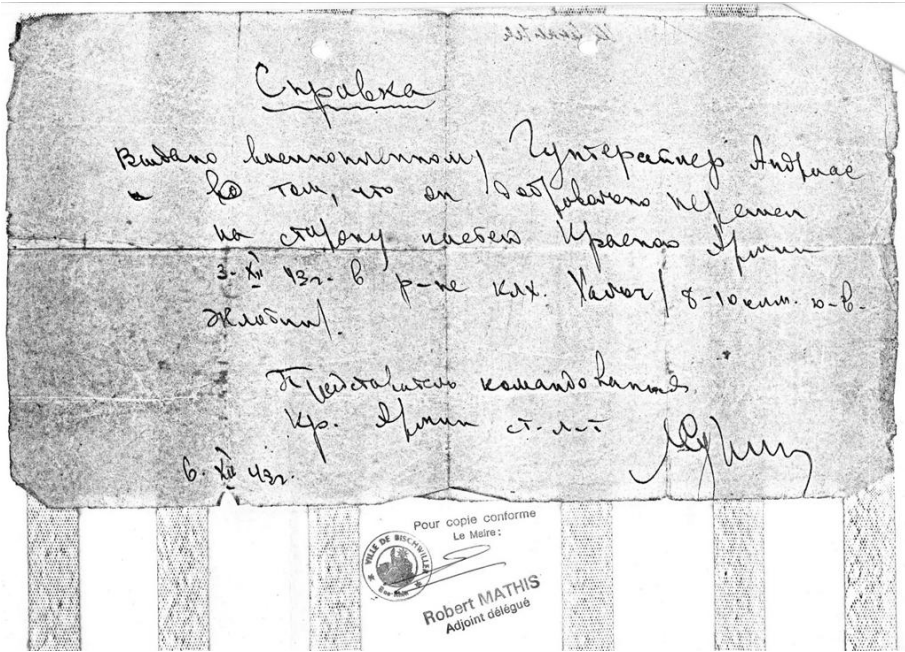 Справка
Выдано военнопленному Гунтерайнер Андриас
в том, что он добровольно перешел
на сторону частей Красной Армии
3. XII 43г. в р-не клх. /8-10 клм. ю-в.
Жлобин/.
Представитель командования
Кр. Армии ст. л-т
6. XII 43г.
Pour copie conforme
Le Maire:
VILLE DE BISCHWILLER
Robert MATHIS
Adjoint délégué